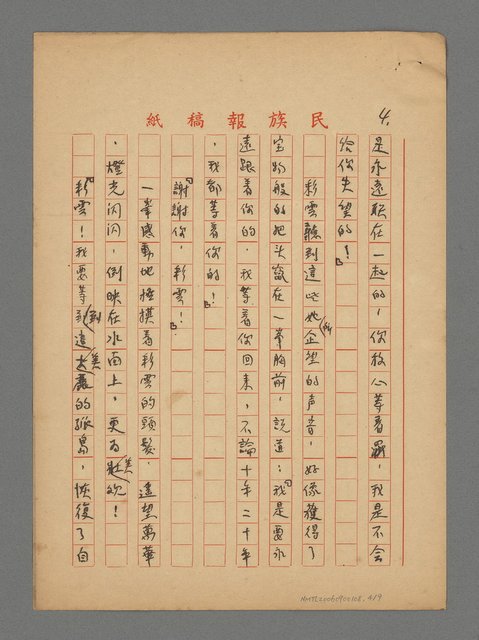 民族報稿紙
4.
是永遠联在一起的，你放心等着罷，我是不会
给你失望的！」
彩雲聽到這些她所企望的声音，好像獲得了
宝物般的把头窩在一峯胸前，説道：「我是要永
遠跟着你的，我等着你回来，不論十年二十年
，我都等着你的！」
「謝謝你，彩雲！」
一峯感動地撫摸着彩雲的頭髮，遥望萬華
，燈光閃閃，倒映在水面上，更为壯美！
「彩雲！我要等到這美麗的孤島，恢復了自
NMTL20060900108. 4/9